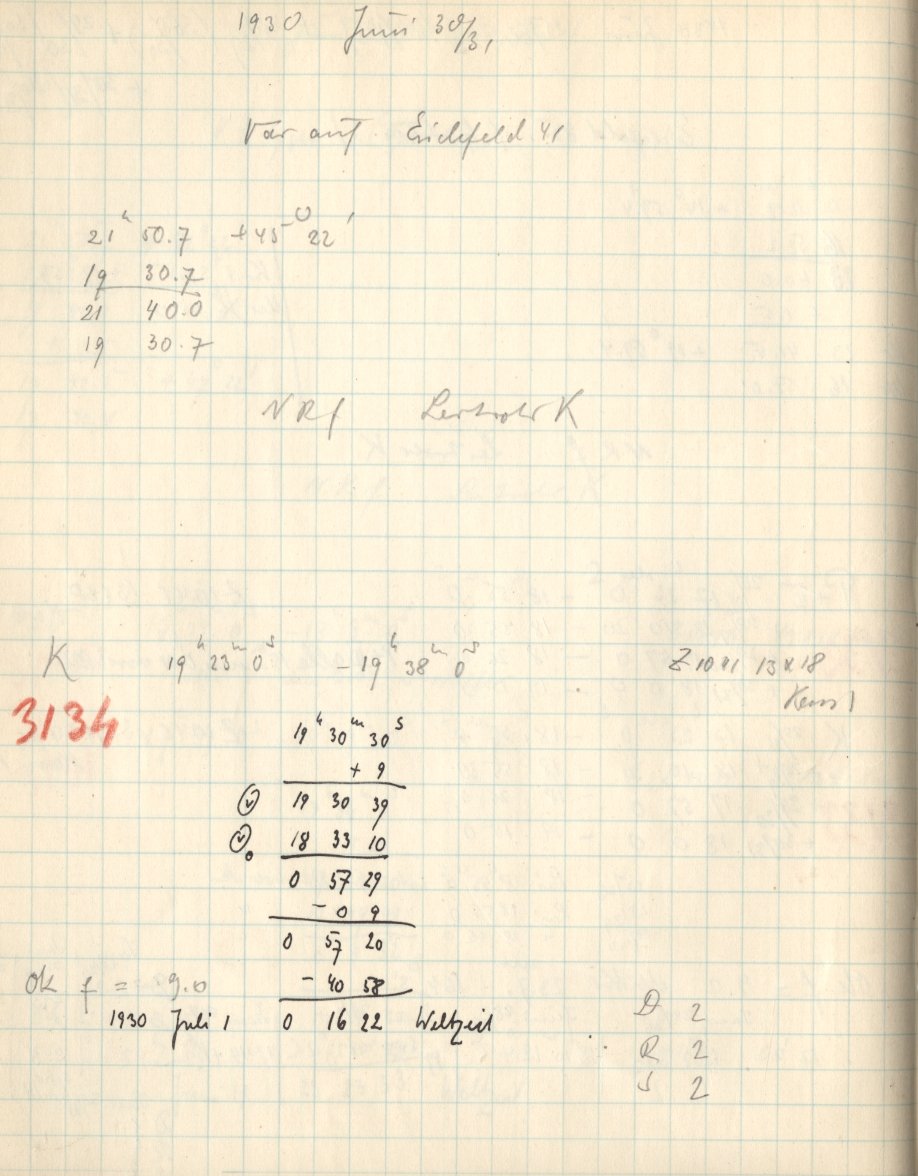 1930 Juni 30/31
Var auf. Eichfeld 41
21h 50.7 +45° 22'
19 30.7
21 40.0
19 30.7
NRf Leitrohr K
K 19h 23m 0s – 19h 38m 0s Z 1041 13x18
3134
19h 30m 30s
+ 9
19 30 39
18 33 10
0 57 29
– 0 9
0 57 20
– 40 58
OK f = 9.0
1930 Juli 1 0 16 22 Weltzeit
D 2
R 2
S 2